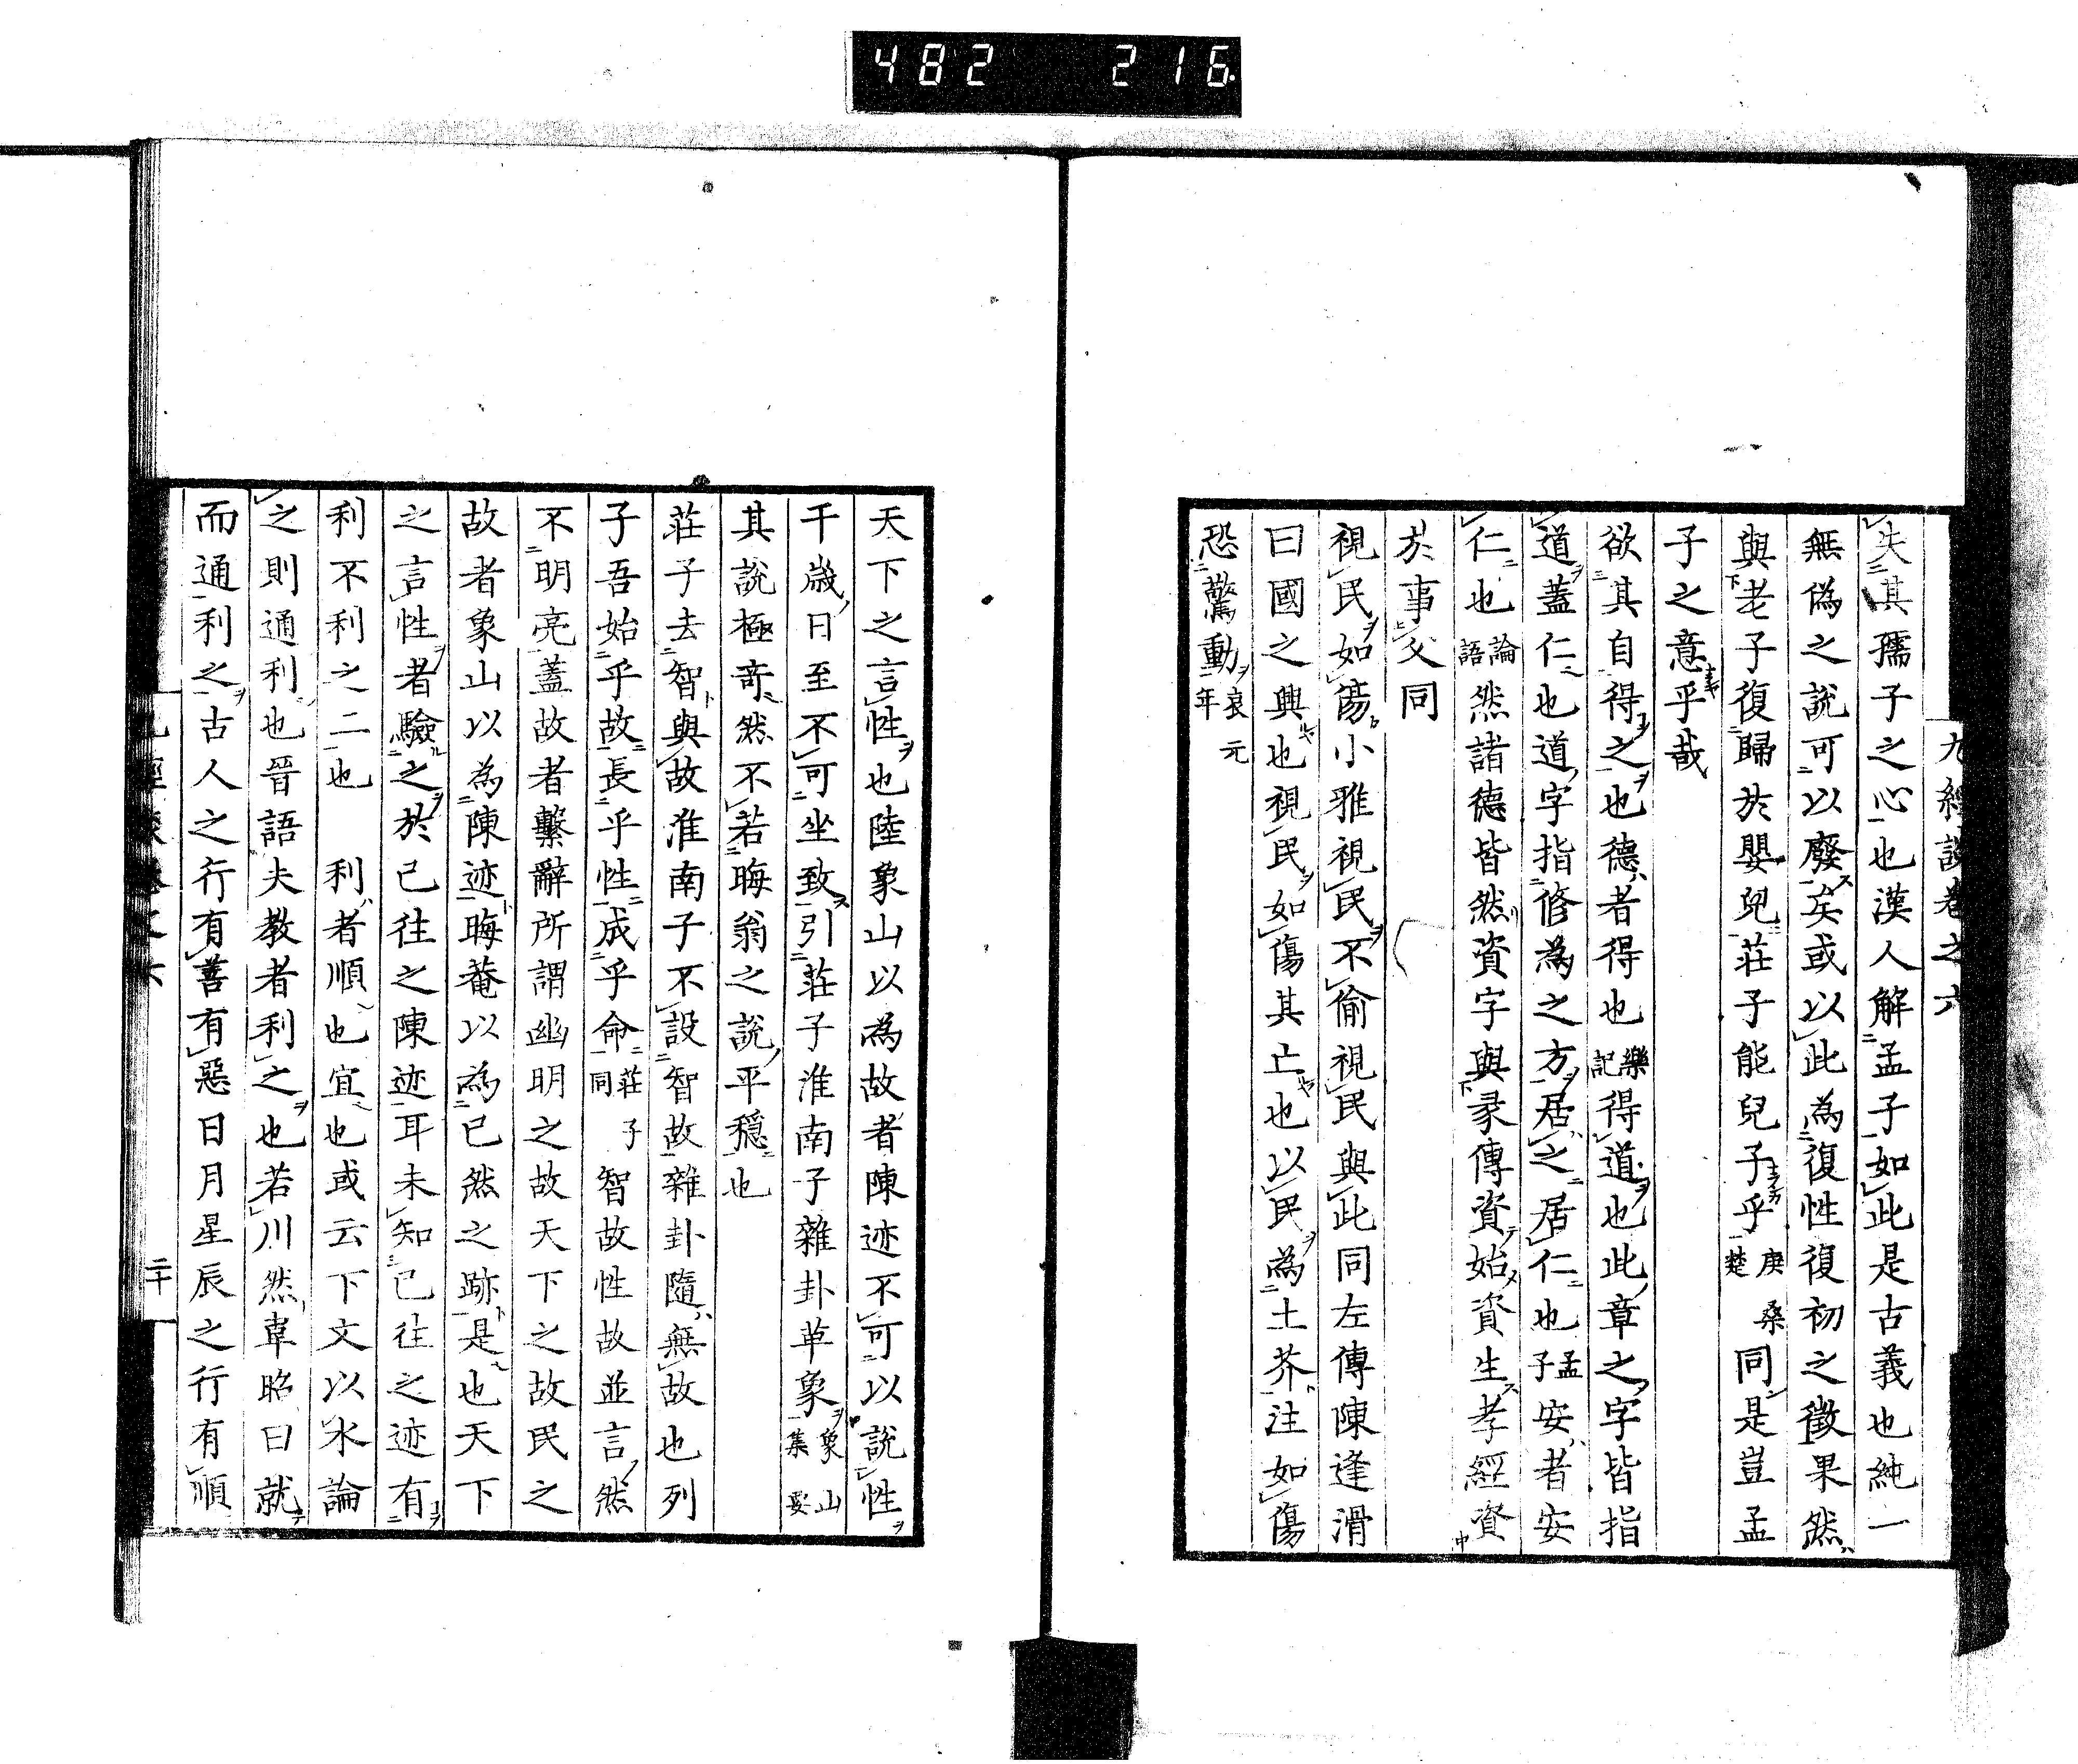 482 216
九經談卷之六
失其孺子之心也漢人解孟子如此是古義也純一
無偽之說可以廢矣或以此為復性復初之徵果然
與老子復歸於嬰兒莊子能兒子乎庚桑楚同是豈孟
子之意乎哉
欲其自得之也德者得也樂記得道也此章之字皆指
道蓋仁也道字指修為之方居之居仁也孟子安者安
仁也論語然諸德皆然資字與彖傳資始資生孝經資
於事父同
視民如傷小雅視民不偷視民與此同左傳陳逢滑
曰國之興也視民如傷其亡也以民為土芥注如傷
恐驚動哀元年
天下之言性也陸象山以為故者陳迹不可以說性
千歲日至不可坐致引莊子淮南子雜卦革象象山集要
其說極奇然不若晦翁之說平穩也
莊子去智與故淮南子不設智故雜卦隨無故也列
子吾始乎故長乎性成乎命莊子同智故性故並言然
不明亮蓋故者繫辭所謂幽明之故天下之故民之
故者象山以為陳迹晦菴以為已然之跡是也天下
之言性者驗之於已往之陳迹耳未知已往之迹有
利不利之二也 利者順也宜也或云下文以水論
之則通利也晉語夫教者利之也若川然韋昭曰就
而通利之古人之行有善有惡日月星辰之行有順
二十